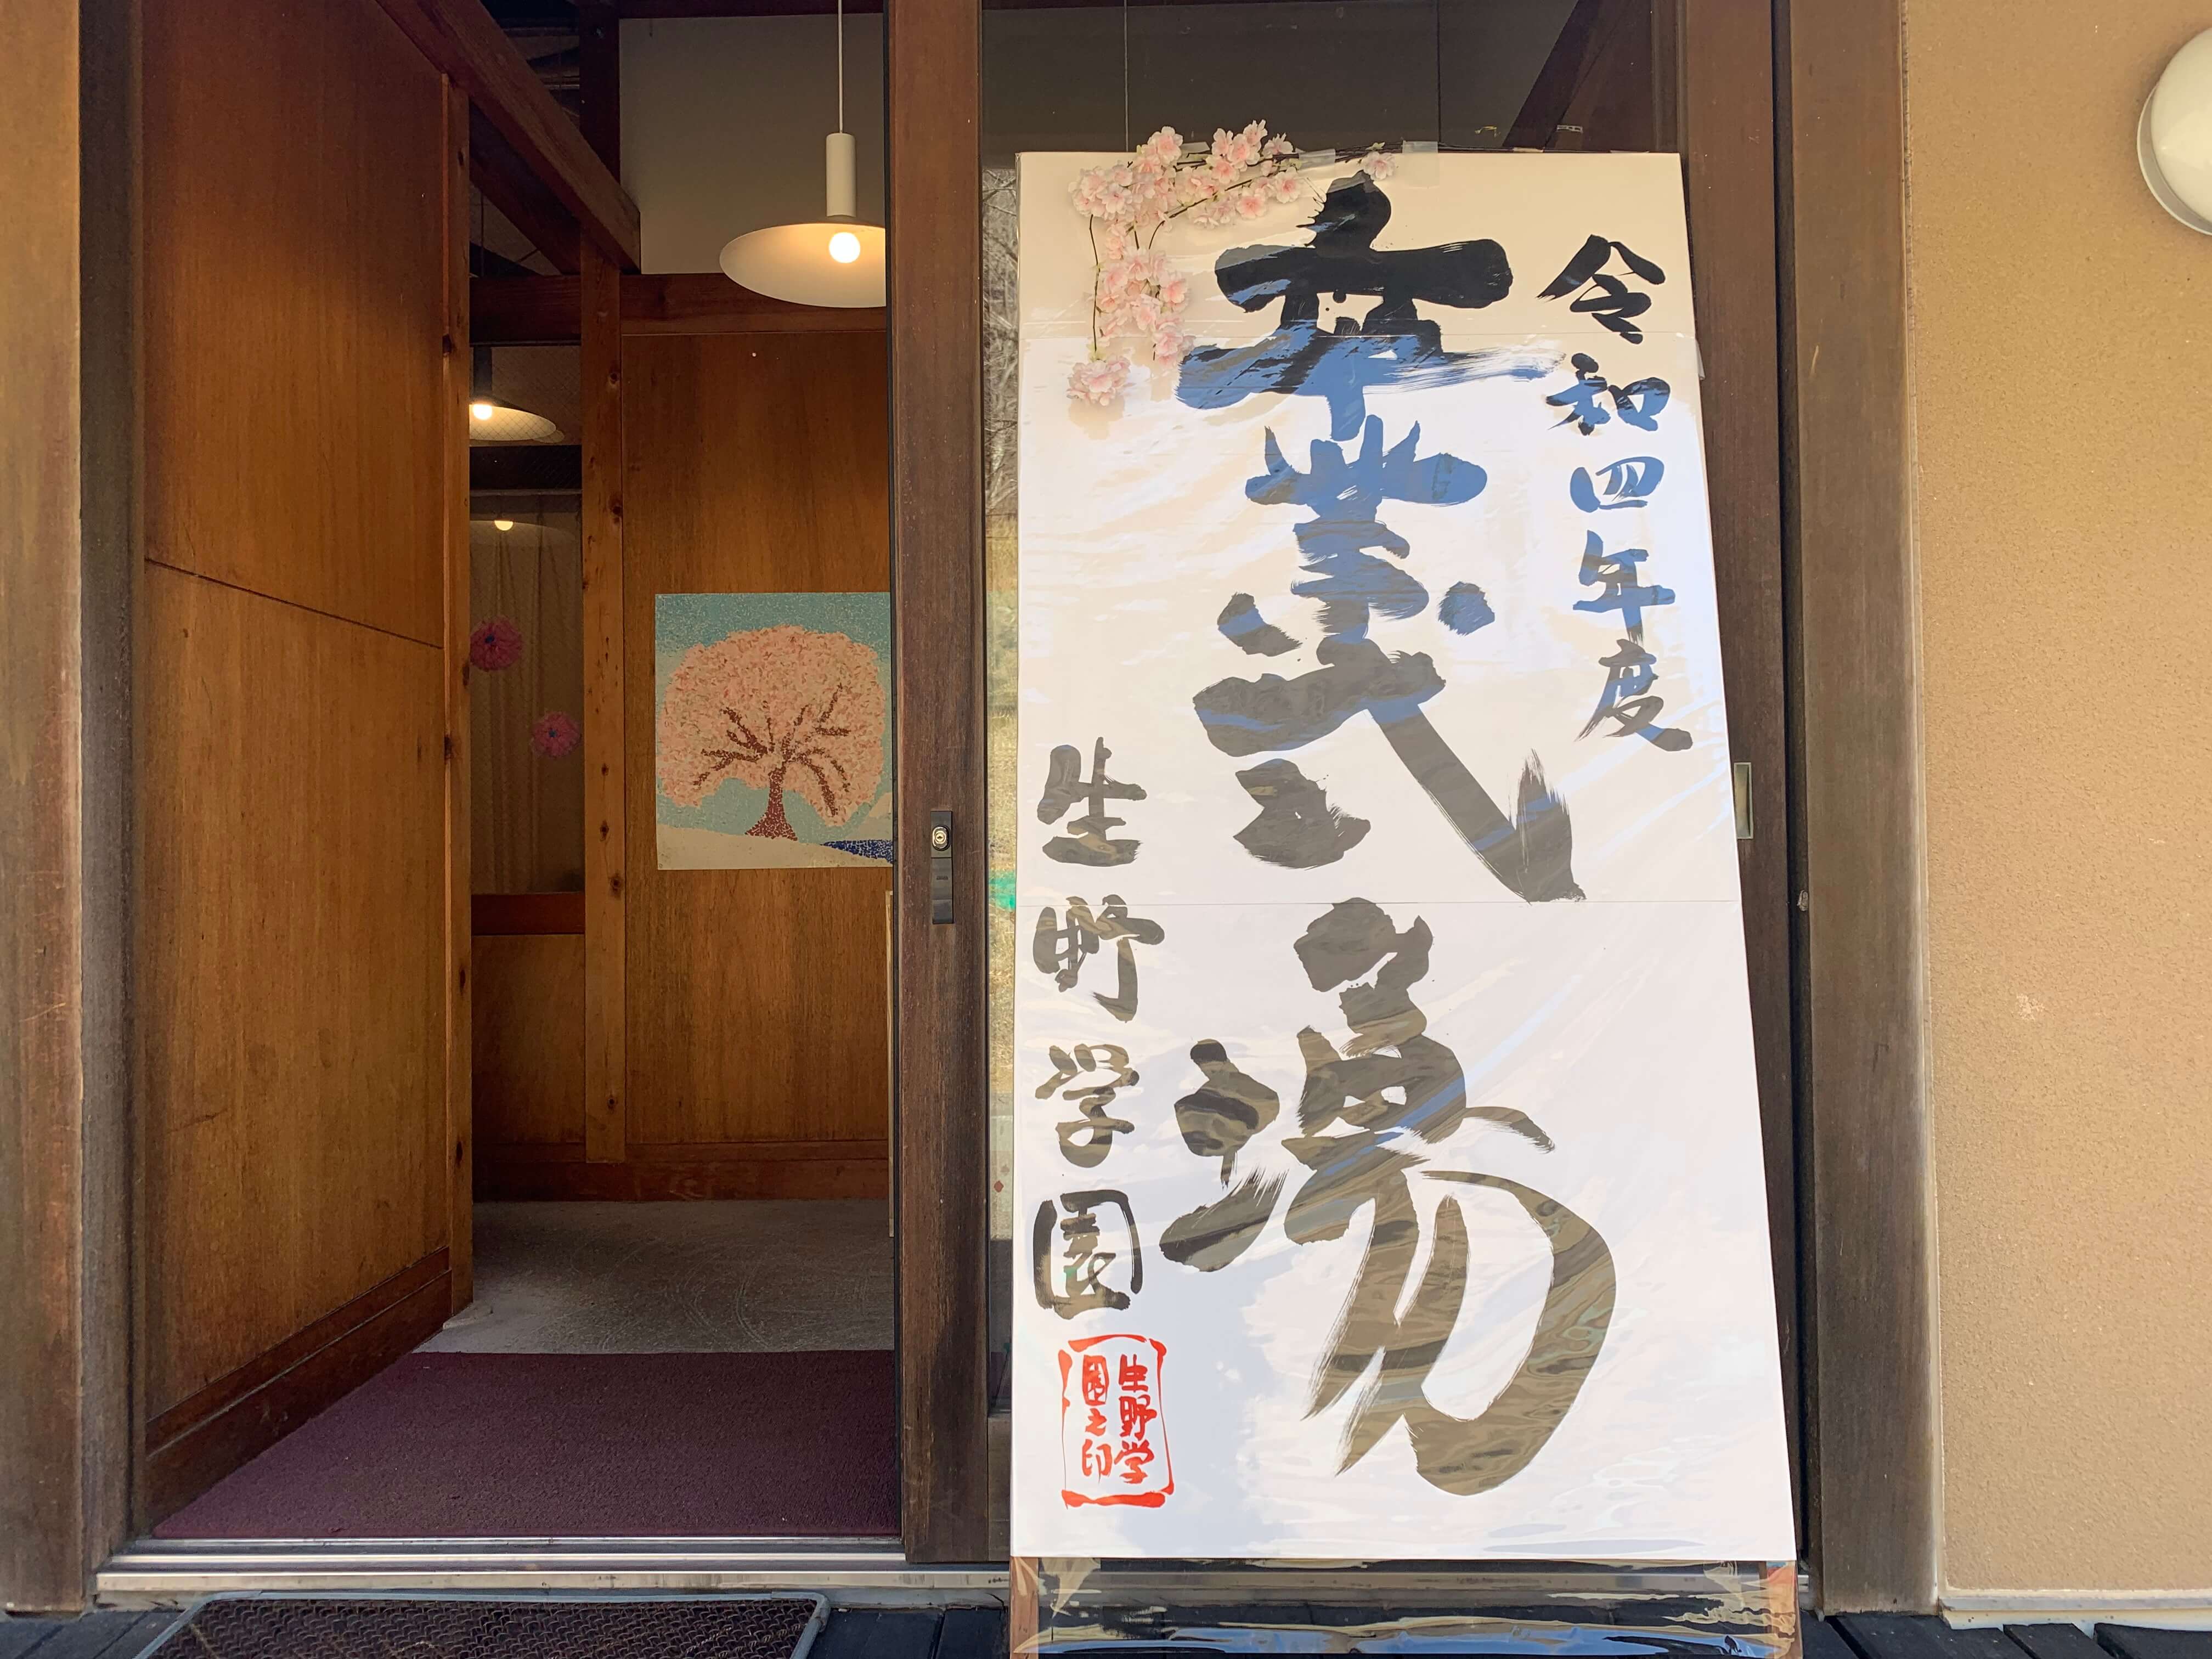 令和四年度
卒業式場
生野学園
生野学
園之印